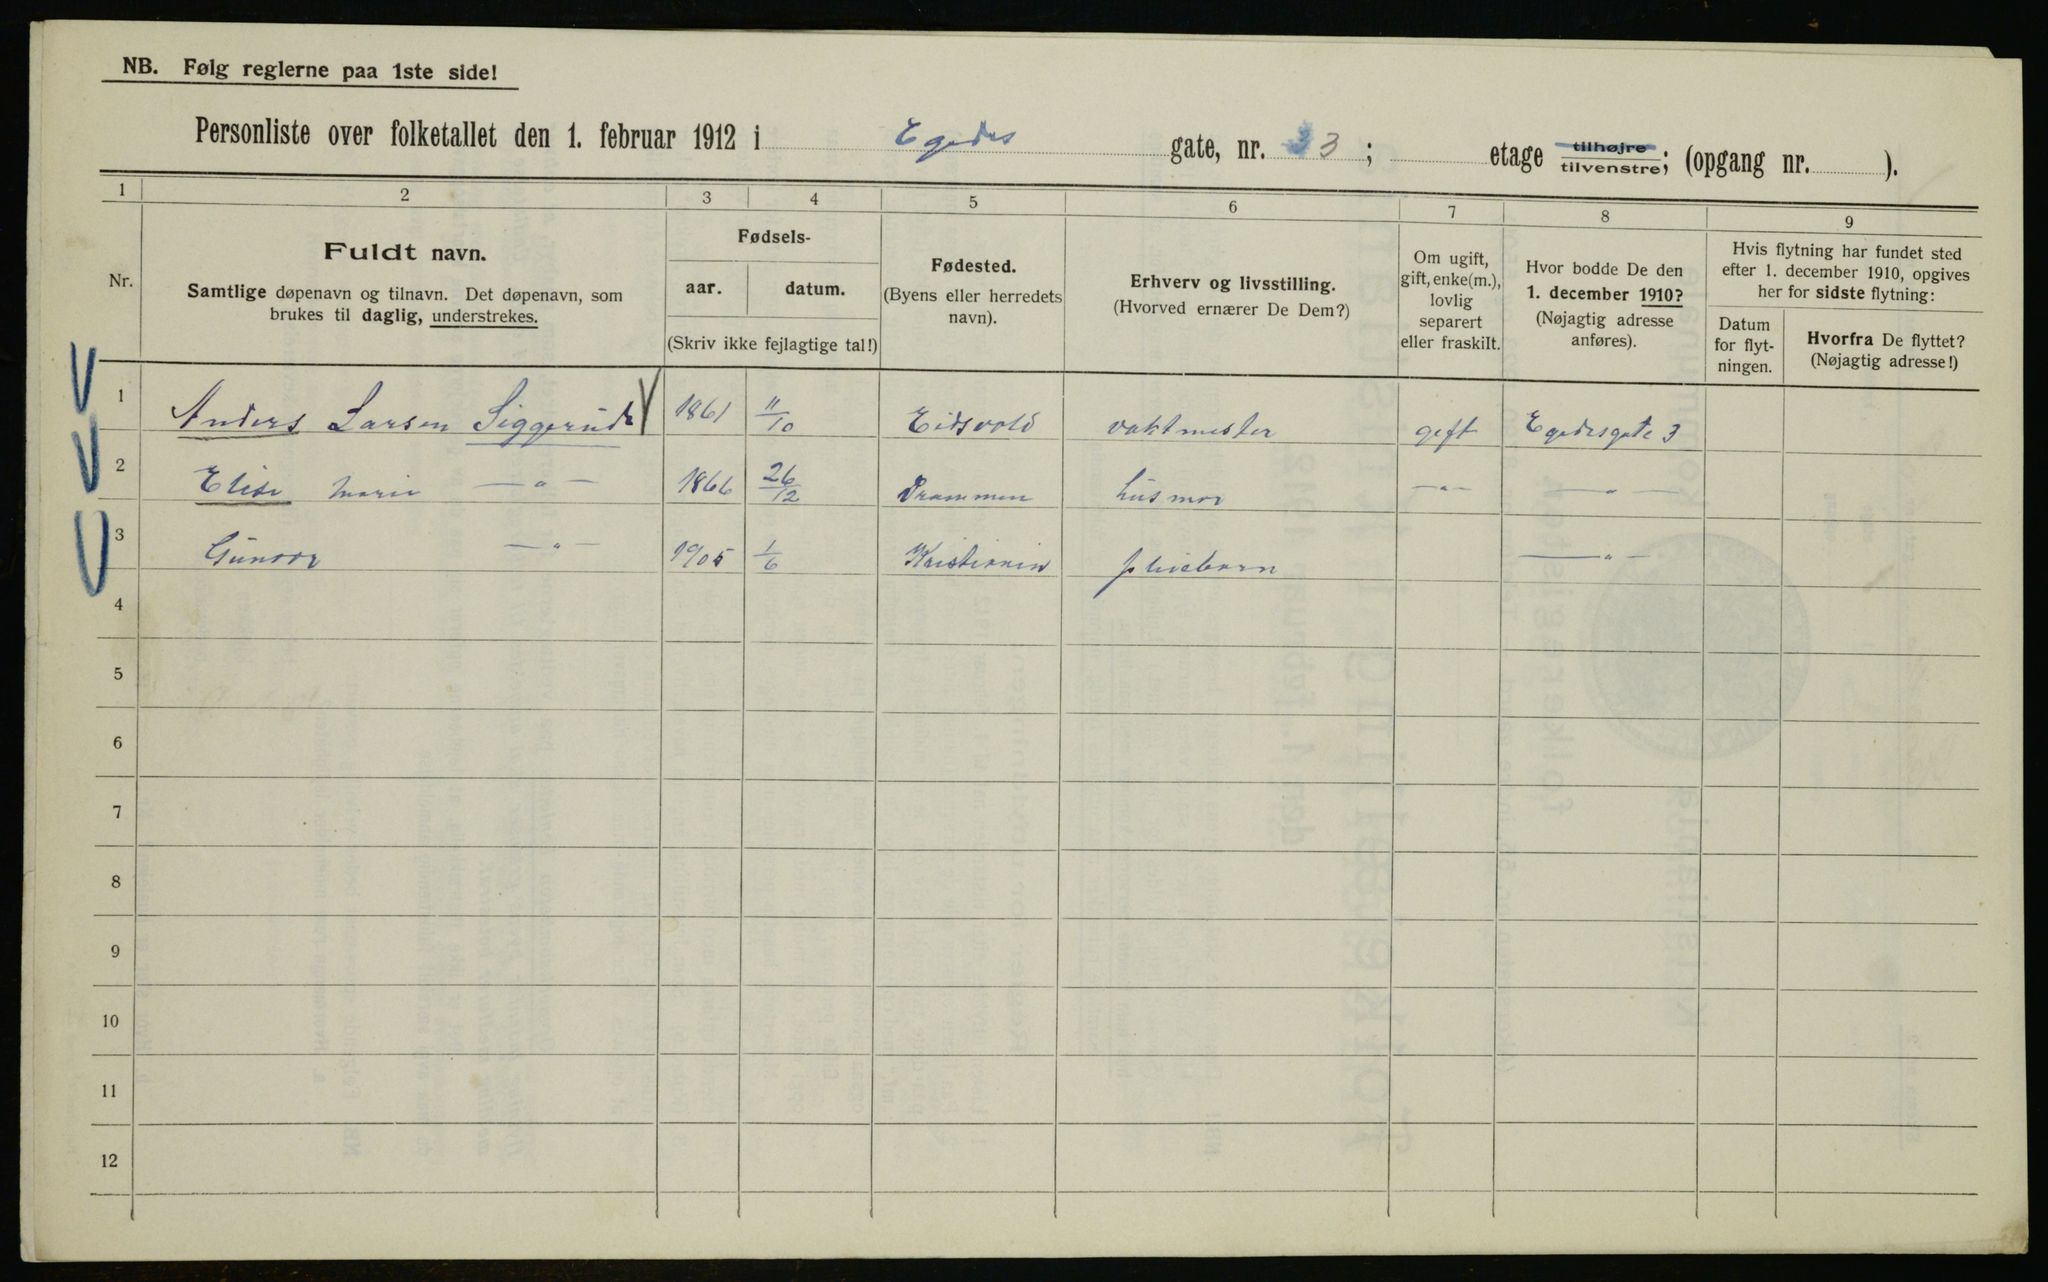 NB. Følg reglerne paa 1ste side!
Personliste over folketallet den 1. februar 1912 i Egedes gate, nr. 3; etage tilhøjre tilvenstre; (opgang nr. ).
1 2 3 4 5 6 7 8 9
Nr.
Fuldt navn.
Samtlige døpenavn og tilnavn. Det døpenavn, som
brukes til daglig, understrekes.
Fødsels-
aar. datum.
(Skriv ikke fejlagtige tal!)
Fødested.
(Byens eller herredets
navn).
Erhverv og livsstilling.
(Hvorved ernærer De Dem?)
Om ugift,
gift, enke(m.),
lovlig
separert
eller fraskilt.
Hvor bodde De den
1. december 1910?
(Nøjagtig adresse
anføres).
Hvis flytning har fundet sted
efter 1. december 1910, opgives
her for sidste flytning:
Datum
for flyt-
ningen.
Hvorfra De flyttet?
(Nøjagtig adresse!)
1 Anders Larsen Siggerud 1861 11/10 Eidsvold vaktmester gift Egedesgate 3
2 Elise Marie —"— 1866 26/12 Drammen husmor —"— —"—
3 Gunvor —"— 1905 1/6 Kristiania pleiebarn —"—
4
5
6
7
8
9
10
11
12